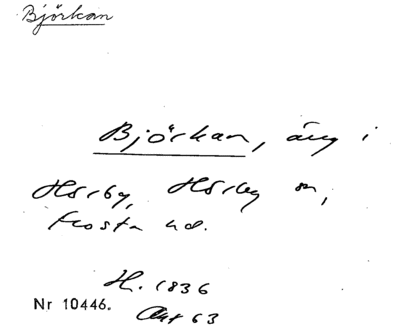 Björkan
Björkan, äng i
Hörby, Hörby sn,
Frosta hd.
H. 1836
Nr 10446.
Akt 63